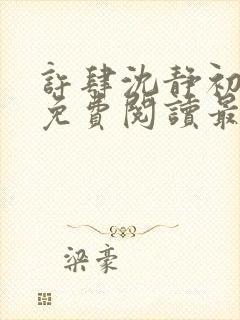 許肆沈靜初
免費閱讀最
梁豪